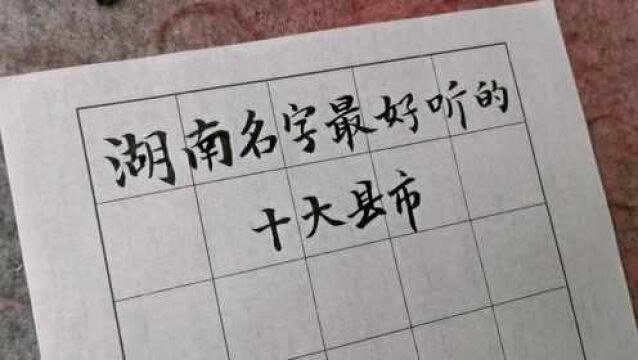 湖南名字最好听的
十大县市